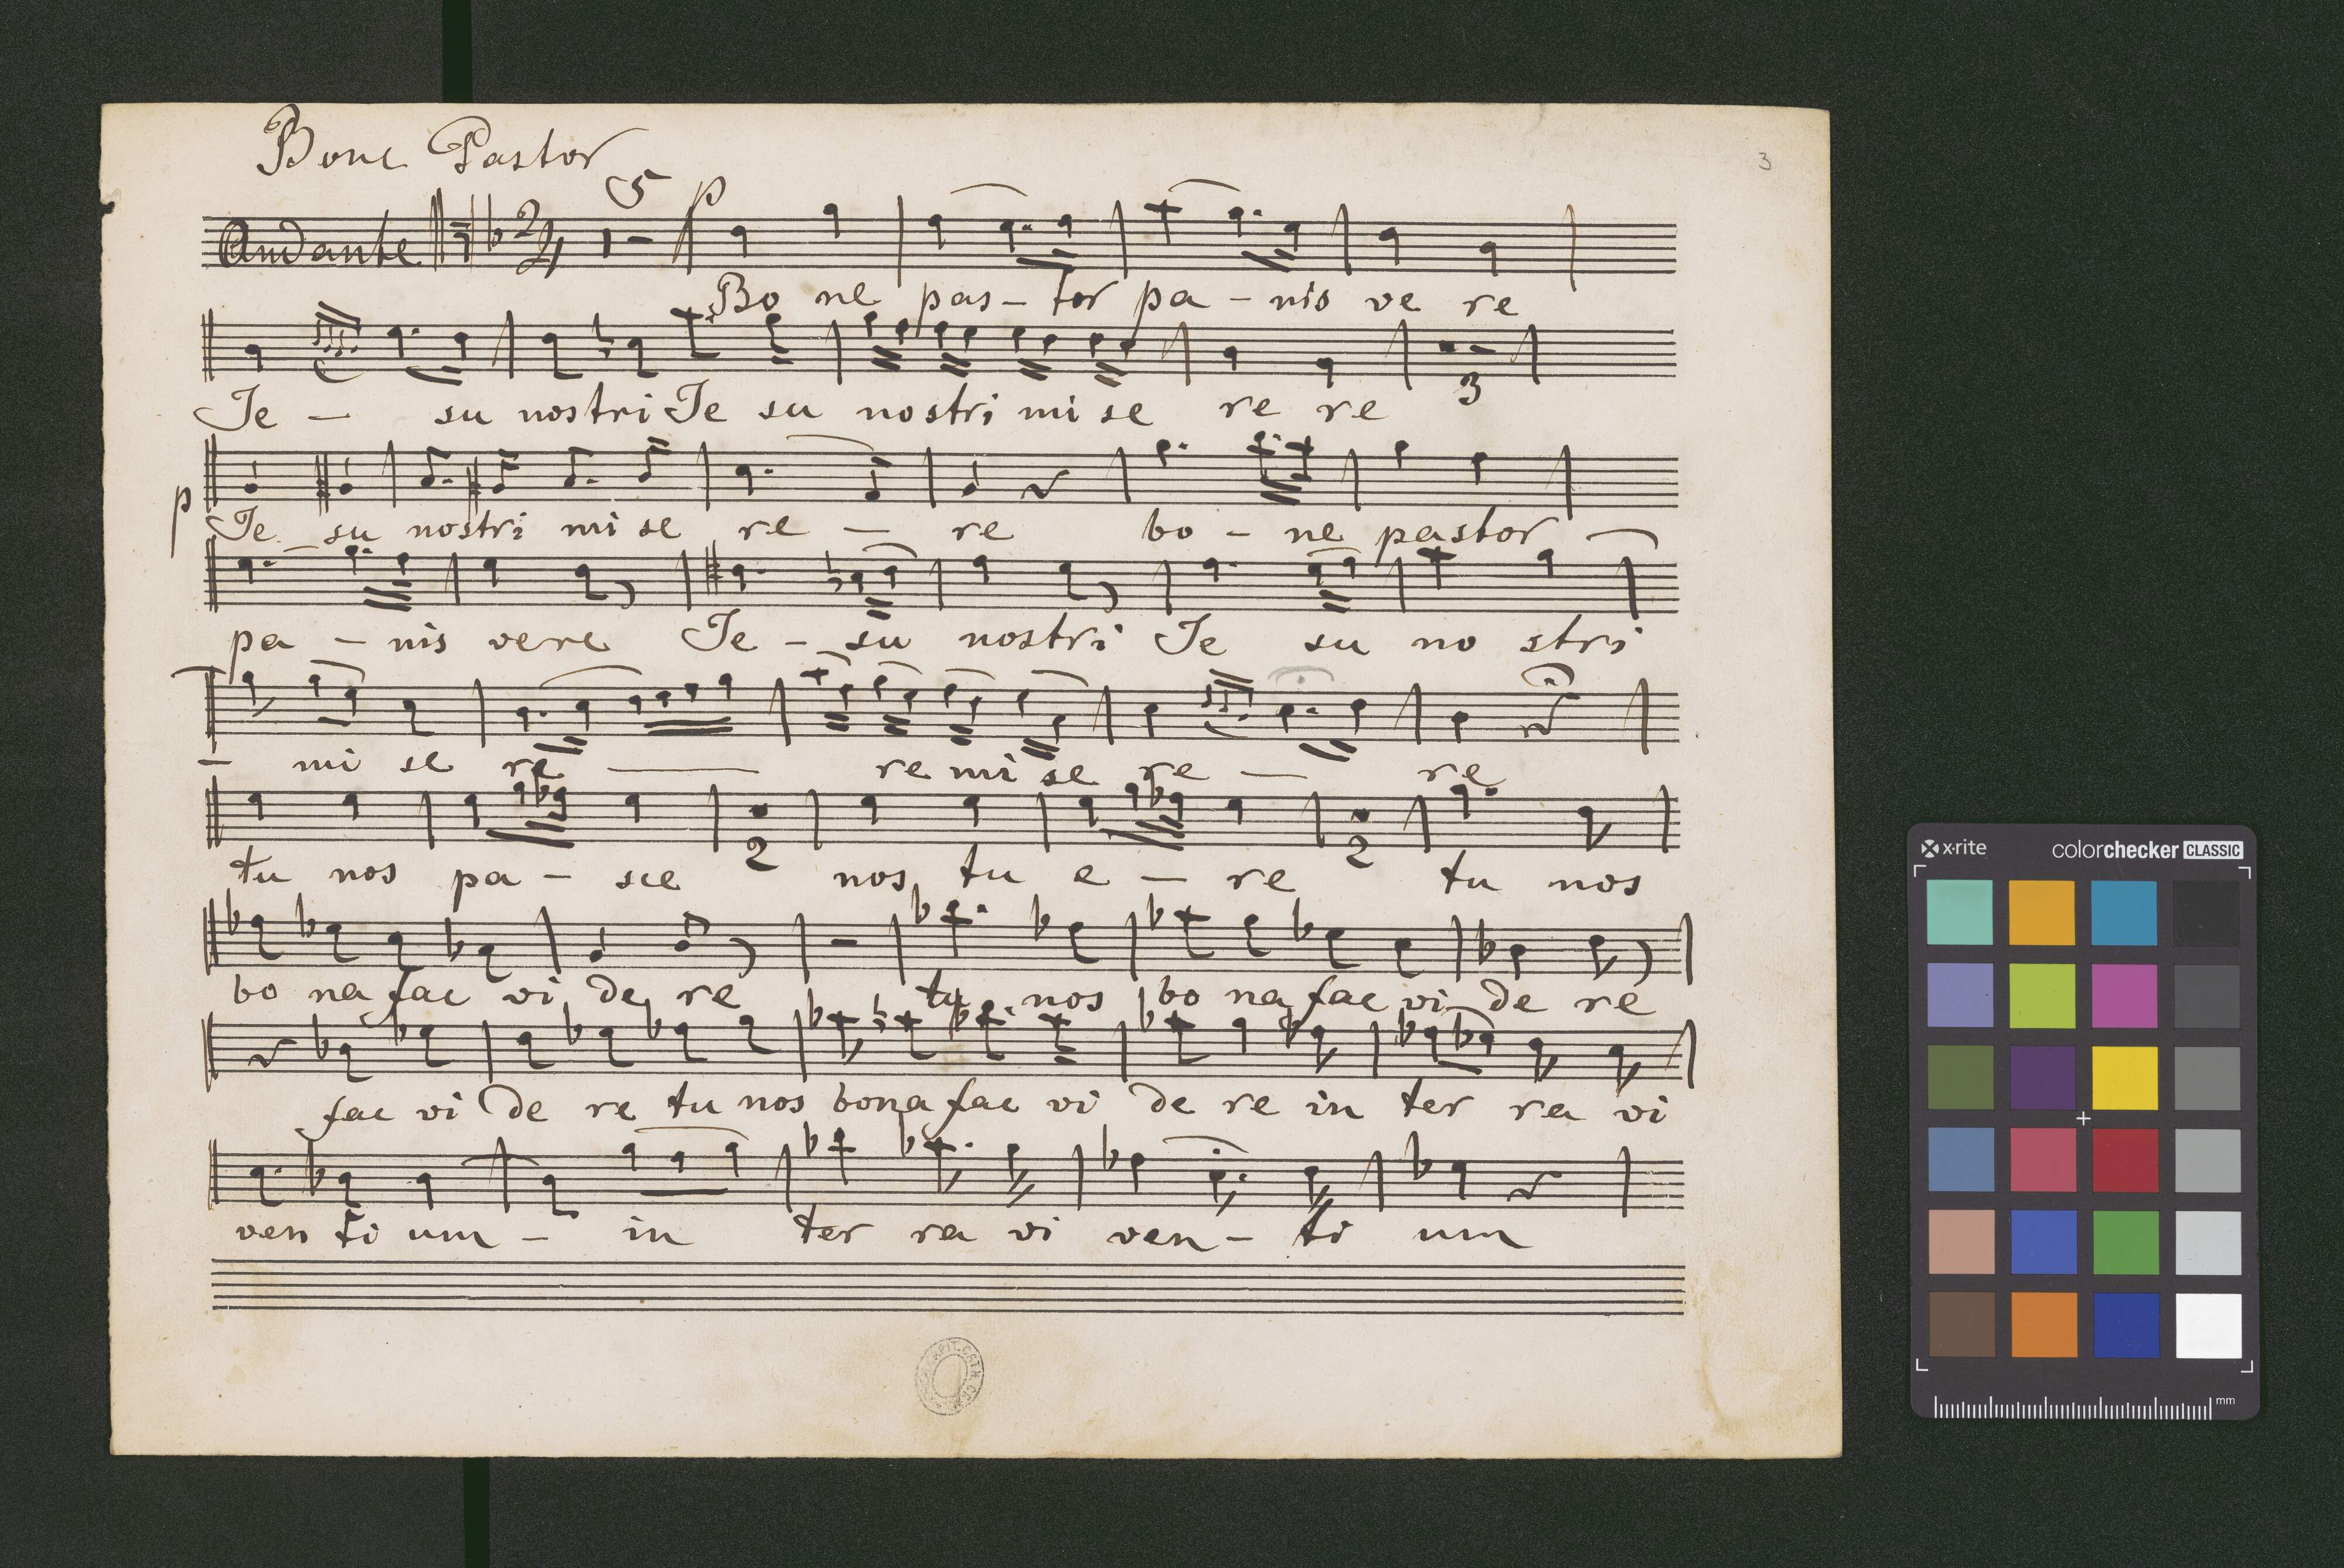 Bone Pastor
3
5 p
Andante 2/4
Bo ne pas - tor pa - nis ve re
Je - su nostri Je su nostri mi se re re
3
p
Je su nostri mi se re - re bo - ne pastor
pa - nis vere Je - su nostri Je su no stri
- mi se re - re mi se re - re
2 2
tu nos pa - sce nos tu e - re tu nos
bo na fac vi de re tu nos bo na fac vi de re
fac vi de re tu nos bona fac vi de re in ter ra vi
ven ti um - in ter ra vi ven - ti um
x-rite colorchecker CLASSIC
mm